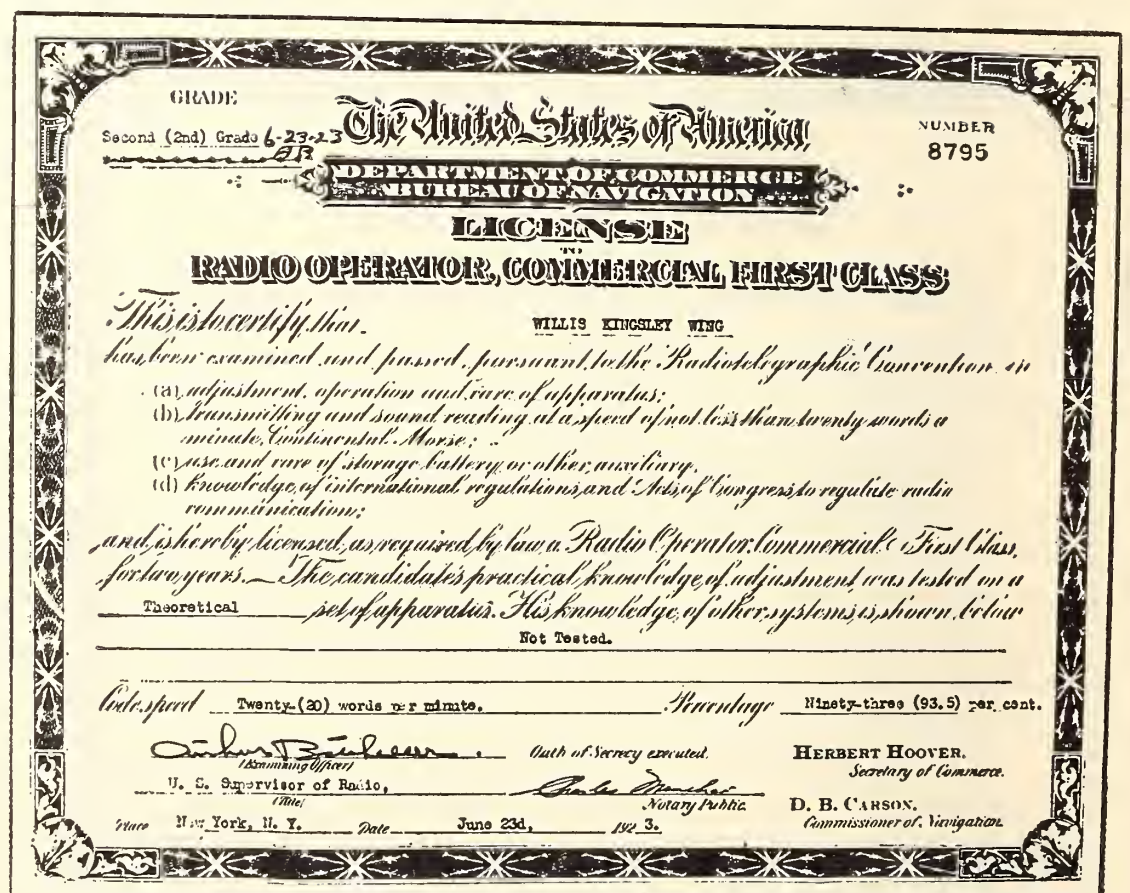 GRADE
Second (2nd) Grade 6-23-23
The United States of America
NUMBER
8795
DEPARTMENT OF COMMERCE
BUREAU OF NAVIGATION
LICENSE
TO
RADIO OPERATOR, COMMERCIAL FIRST CLASS
This is to certify, that WILLIS KINGSLEY WING
has been examined and passed, pursuant to the Radiotelegraphic Convention in
(a) adjustment, operation and care of apparatus;
(b) transmitting and sound reading at a speed of not less than twenty words a
minute, Continental Morse;
(c) use and care of storage battery or other auxiliary.
(d) knowledge of international regulations and Acts of Congress to regulate radio
communication;
and is hereby licensed, as required by law, a Radio Operator, Commercial First Class,
for two years. — The candidate's practical knowledge of adjustment was tested on a
Theoretical set of apparatus. His knowledge of other systems is shown below
Not Tested.
Code speed Twenty-(20) words per minute. Percentage Ninety-three (93.5) per cent.
(Examining Officer) Oath of Secrecy executed. HERBERT HOOVER.
Secretary of Commerce.
U. S. Supervisor of Radio,
(Title) Charles Notary Public. D. B. CARSON.
Commissioner of Navigation.
Place New York, N. Y. Date June 23d, 1923.